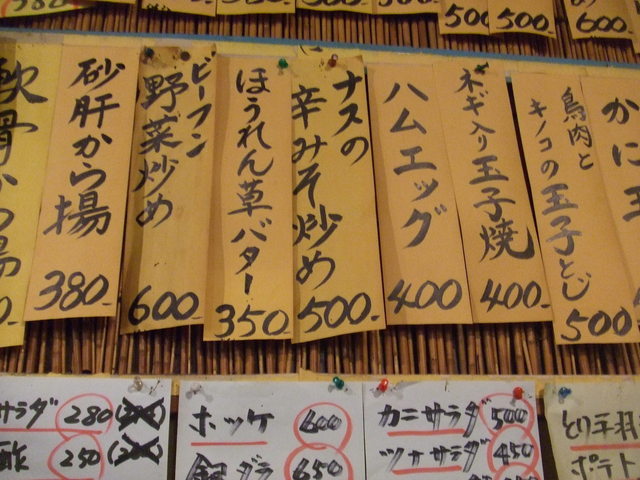 380
500
500
600
かに玉
鳥肉と
キノコの玉子とじ
500
ネギ入り玉子焼
400
ハムエッグ
400
ナスの
辛みそ炒め
500
ほうれん草バター
350
ビーフン
野菜炒め
600
砂肝から揚
380
軟骨から揚
サラダ 280
酢 250
ホッケ 600
銀ダラ 650
カニサラダ 500
ツナサラダ 450
とり手羽
ポテト